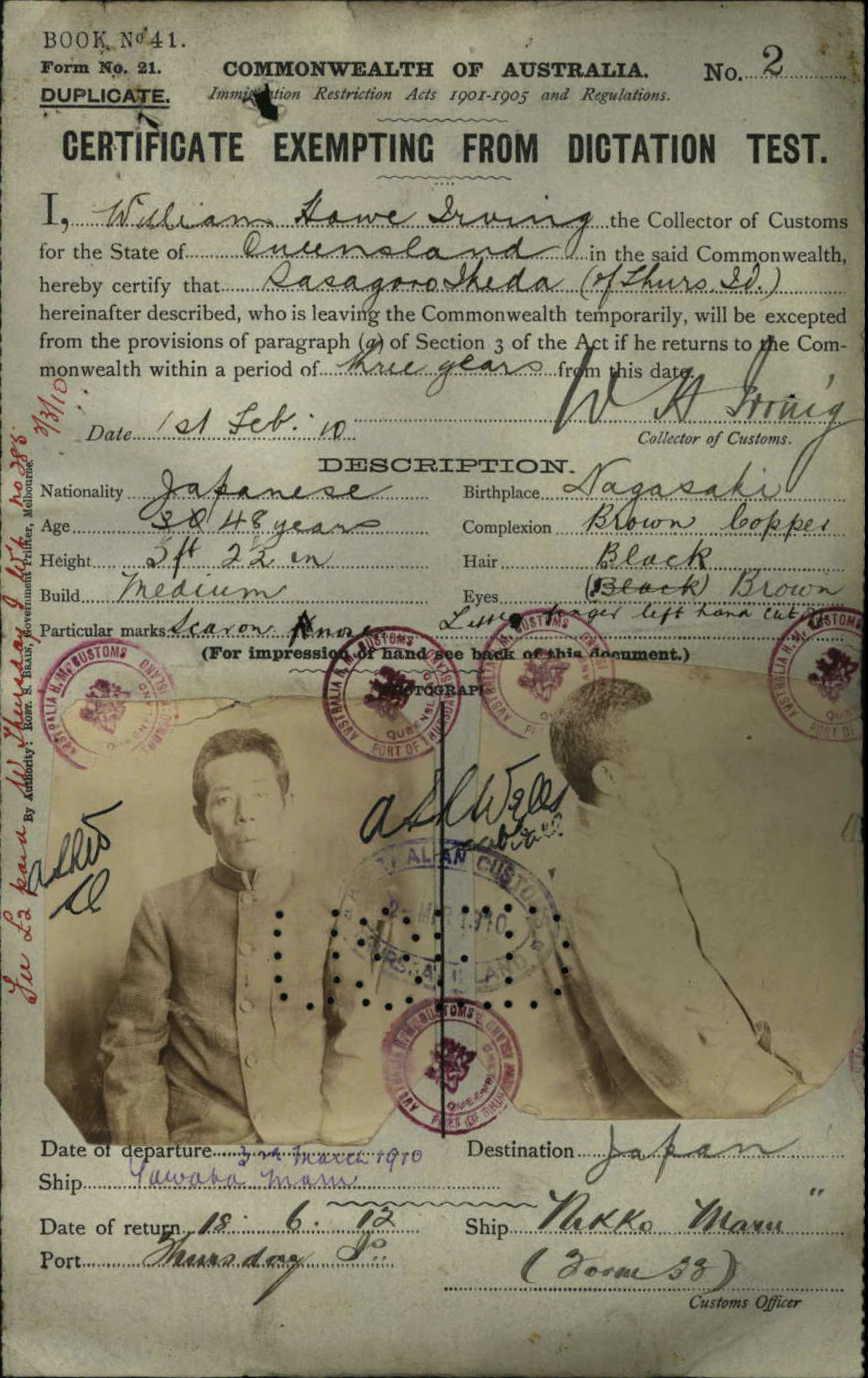 BOOK No 41.
Form No. 21.
COMMONWEALTH OF AUSTRALIA.
No. 2
DUPLICATE.
Immigration Restriction Acts 1901-1905 and Regulations.
CERTIFICATE EXEMPTING FROM DICTATION TEST.
I, William Howe Irving the Collector of Customs
for the State of Queensland in the said Commonwealth,
hereby certify that Sasagoro Ikeda (of Thurs. Id.)
hereinafter described, who is leaving the Commonwealth temporarily, will be excepted
from the provisions of paragraph (a) of Section 3 of the Act if he returns to the Com-
monwealth within a period of three years from this date
W H Irving
Date 1st Feb. '10
Collector of Customs.
DESCRIPTION.
Nationality Japanese
Birthplace Nagasaki
Age 48 years
Complexion Brown Copper
Height 5ft 2½ in
Hair Black
Build Medium
Eyes (Black) Brown
Particular marks Scar on
finger left hand cut
(For impression of hand see back of this document.)
PHOTOGRAPH
Date of departure 3rd March 1910
Destination Japan
Ship Maru
Date of return 18. 6. 12
Ship Nikko Maru "
Port Thursday Is.
(Form 33)
Customs Officer
By Authority: ROBT. S. BRAIN, Government Printer, Melbourne.
£2 paid
2/3/10